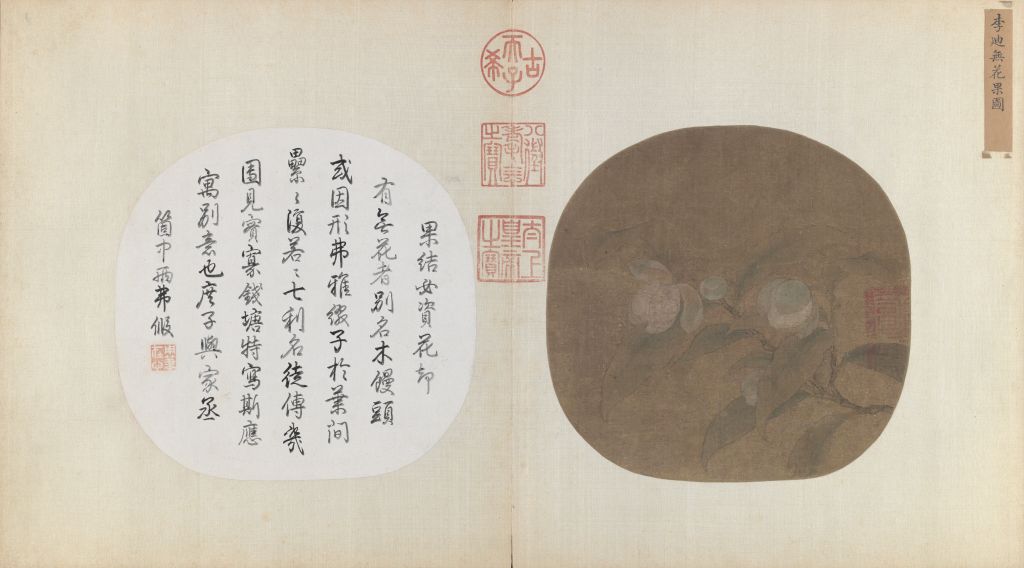 李廸無花果圖
古希天子
八徵耄念之寶
太上皇帝之寶
果結安資花却
有無花者別名木饅頭
或因形弗雅綴子於葉間
纍〻復若〻七利名徒傳幾
園見實寡錢塘特寫斯應
寓別意也庶子與家丞
箇中兩弗假